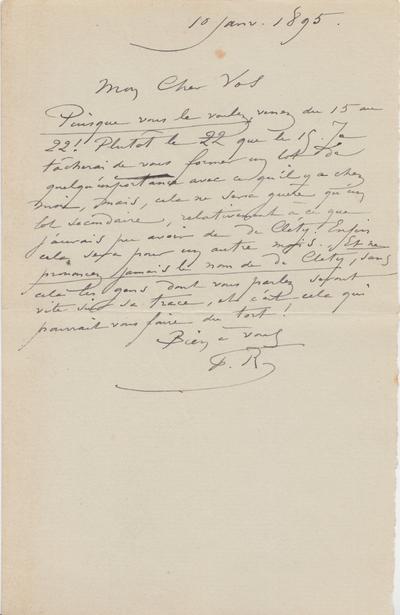 10 janv. 1895.
Mon Cher Vos
Puisque vous le voulez, venez du 15 au
22! Plutôt le 22 que le 15. Je
tâcherai de vous former un lot de
quelqu'importance avec ce qu'il y a chez
moi, mais, cela ne sera guère qu'un
lot secondaire, relativement à ce que
j'aurais pu avoir de de Clety. Enfin
cela sera pour un autre mois. Et ne
prononcez jamais le nom de de Clety, sans
cela les gens dont vous parlez seront
vite sur sa trace, et c'est cela qui
pourrait vous faire du tort!
Bien à vous
F. R.